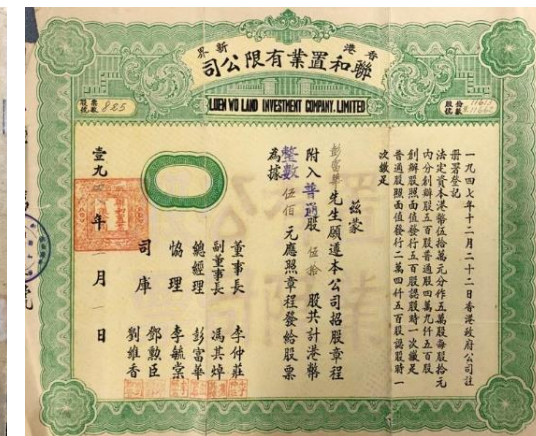 香港
新界
聯和置業有限公司
LUEN WO LAND INVESTMENT COMPANY, LIMITED
票數
股份
號數
825
一九四七年十二月二十二日香港政府公司註
冊署登記
法定資本港幣伍拾萬元分作五萬股每股拾元
內分創辦股五百股普通股四萬九仟五百股
創辦股照面值發行五百股認股時一次繳足
普通股照面值發行二萬四仟五百股認股時一
次繳足
茲蒙
彭富華先生願遵本公司招股章程
附入普通股伍拾股共計港幣
整數伍佰元應照章程發給股票
為據
董事長 李仲莊
副董事長 馮其焯
總經理 彭富華
協理 李毓棠
鄧勲臣
司庫 劉維香
壹九 年 一月 一日